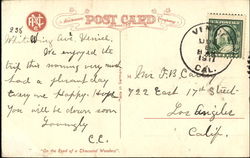 POST CARD
235
Whitening Ave. Venice.
We enjoyed the
trip this morning very much
had a pleasant day
Every one Happy. Hope
You will be down soon
Lovingly
C.C.
VEN
1911
CAL.
Mr F. B. Ca
722 East 17th Street
Los Angeles
Calif.
"On the Road of a Thousand Wonders"